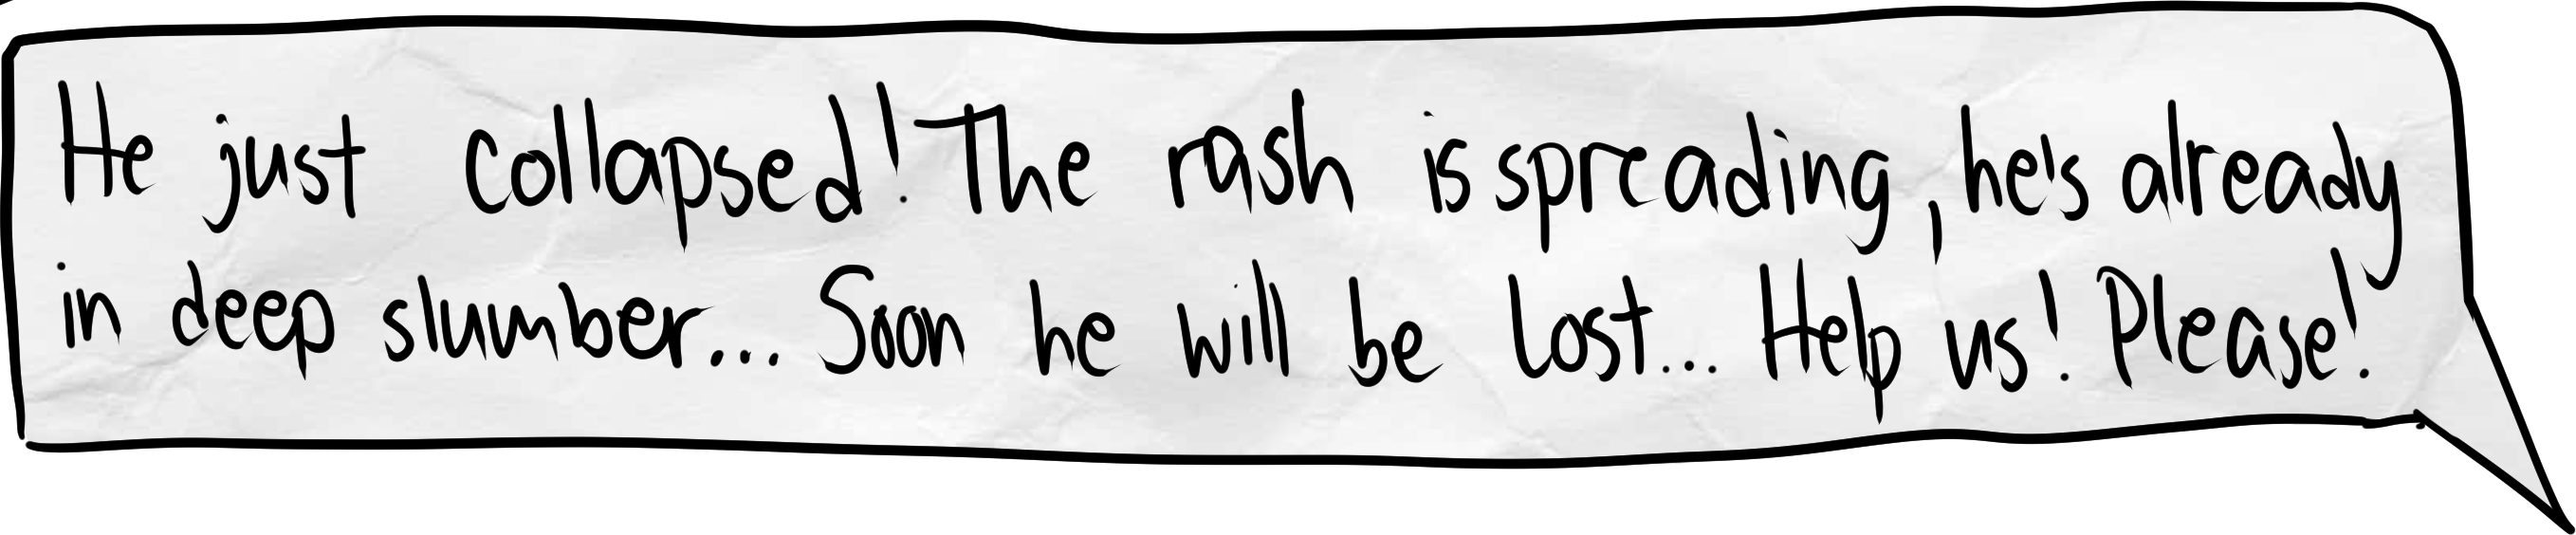 He just collapsed! The rash is spreading, he's already
in deep slumber... Soon he will be lost... Help us! Please!